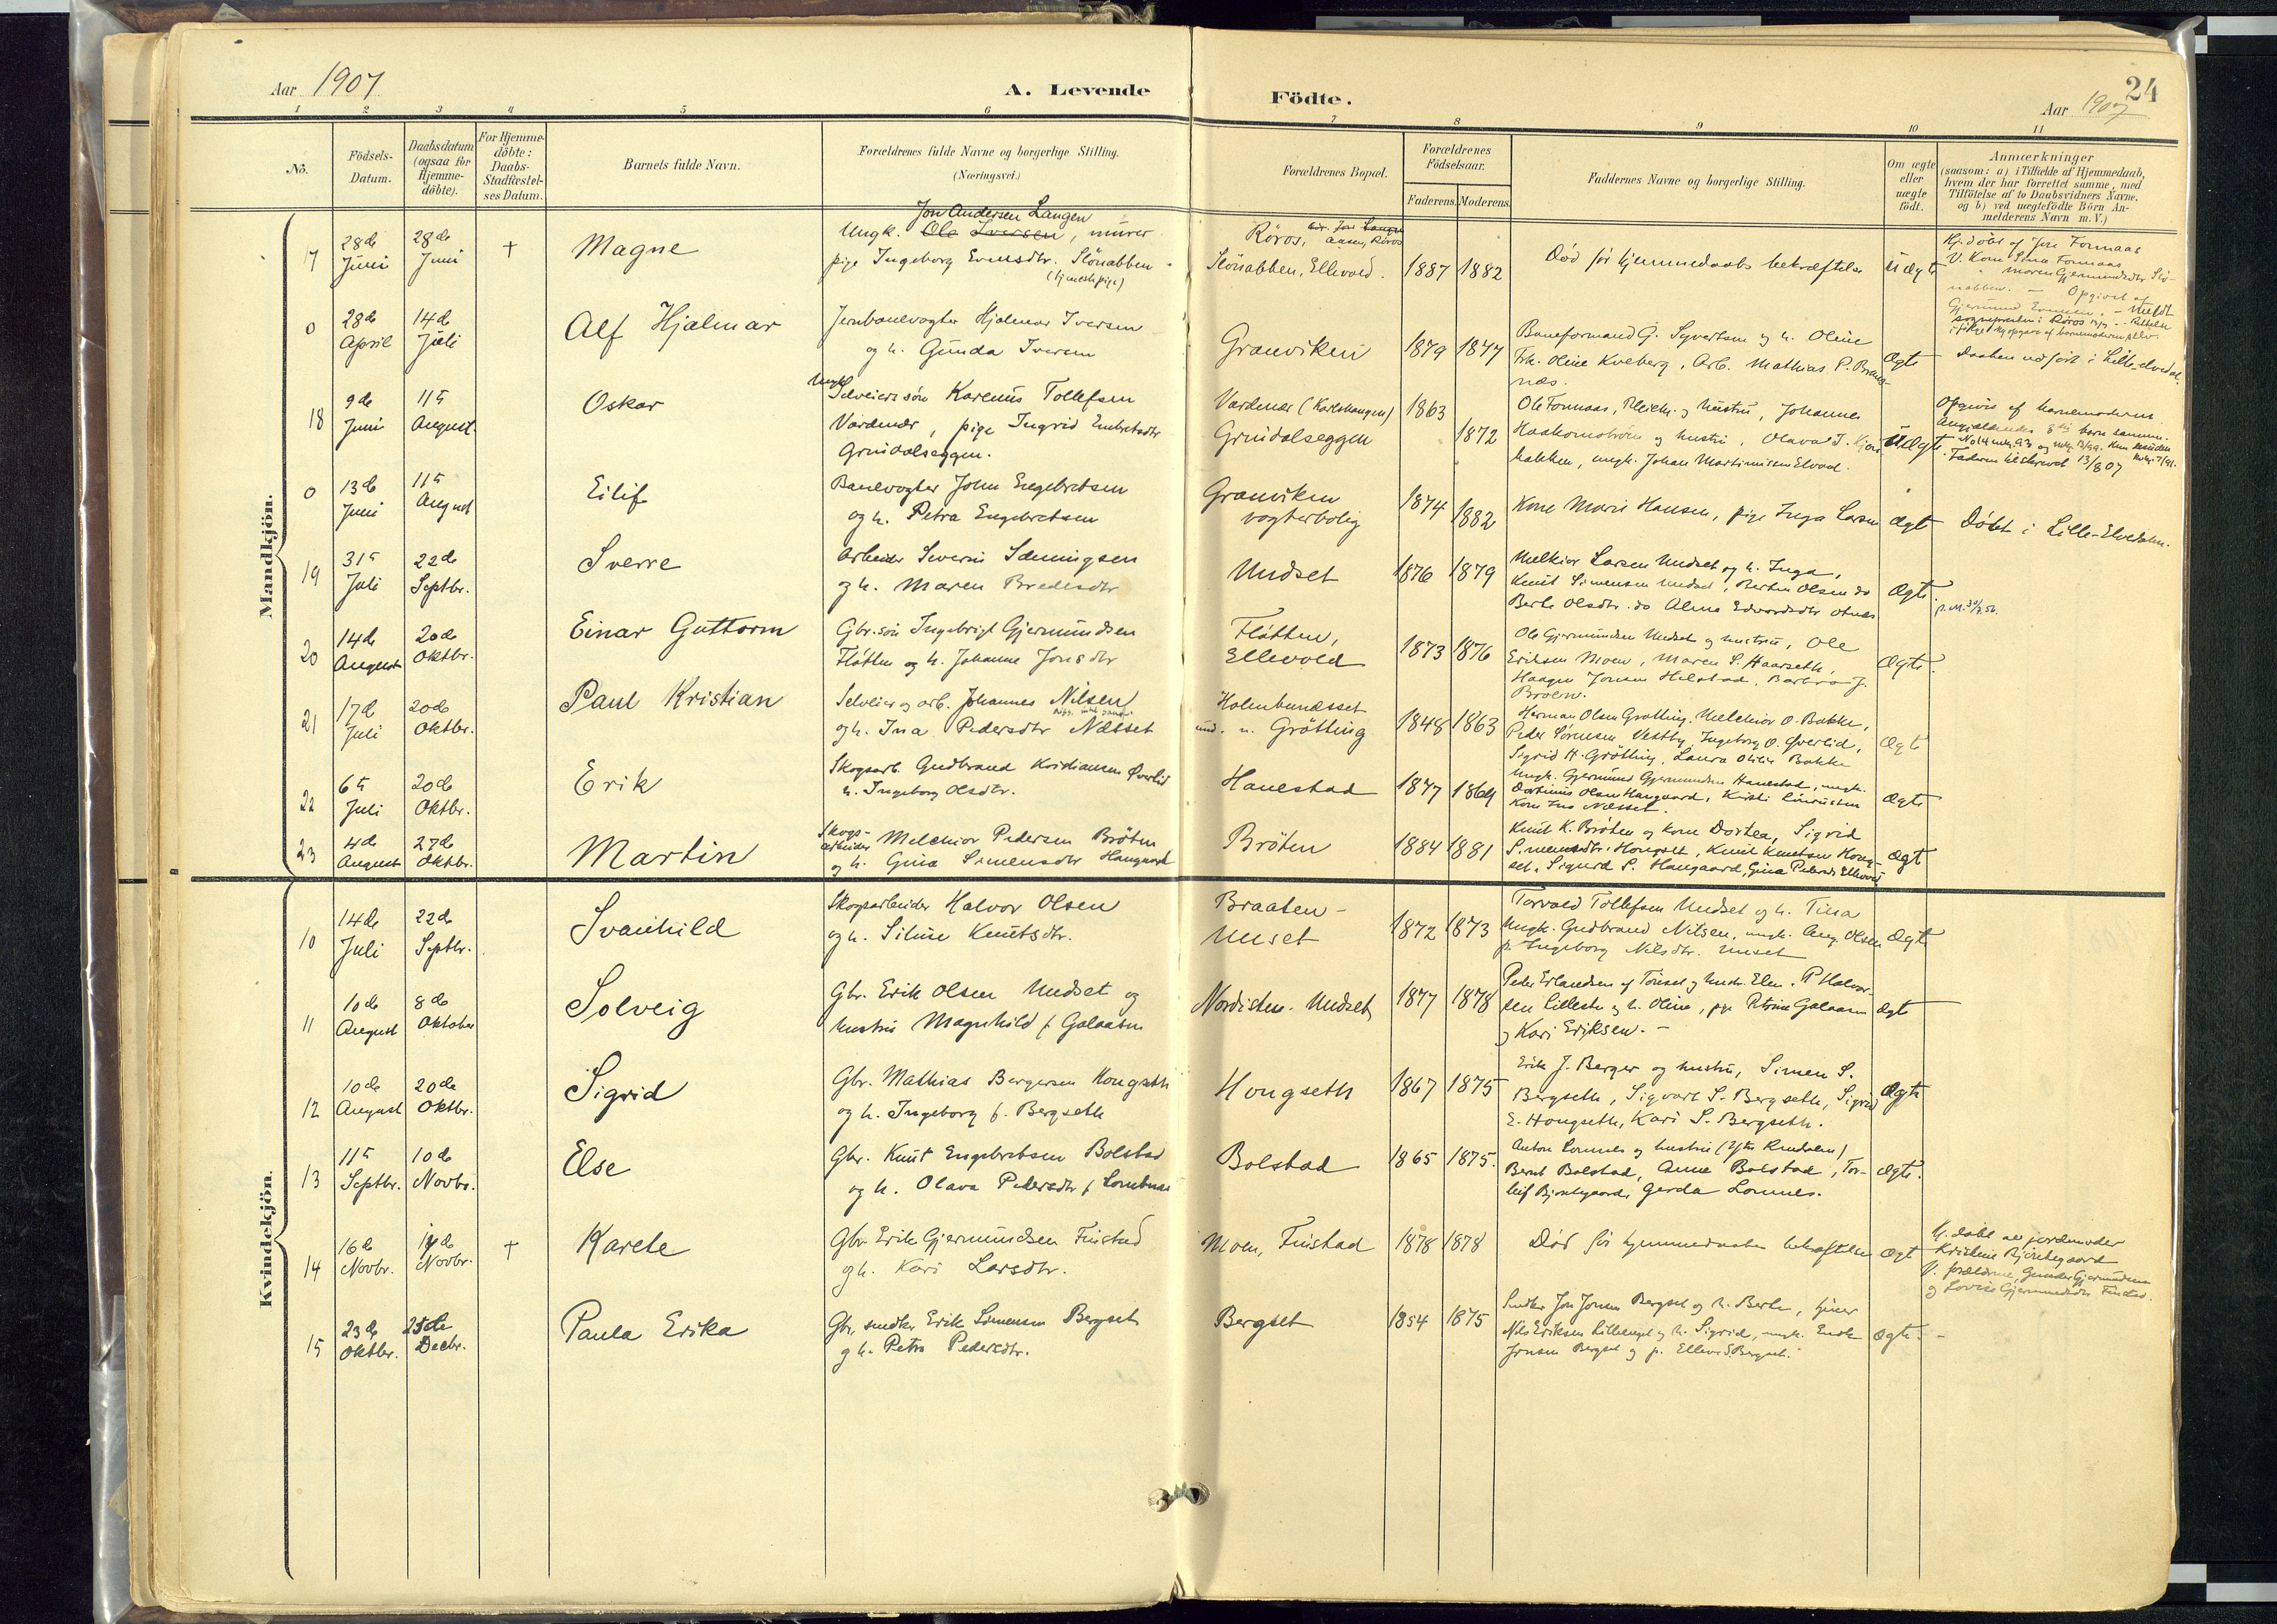 Aar 1907
A. Levende
Födte.
24
Aar 1907
1 2 3 4 5 6 7 8 9 10 11
No.
Födsels-Datum.
Daabsdatum (ogsaa for Hjemme-döbte).
For Hjemme-döbte: Daabs-Stadfæstel-ses Datum.
Barnets fulde Navn.
Forældrenes fulde Navne og borgerlige Stilling.
(Næringsvei.)
Forældrenes Bopæl.
Forældrenes Födselsaar.
Faderens. Moderens.
Faddernes Navne og borgerlige Stilling.
Om ægte eller uægte födt.
Anmærkninger
(saasom: a) i Tilfælde af Hjemmedaab,
hvem der har forrettet samme, med
Tilföielse af to Daabsvidners Navne.
og b) ved uegtefödte Börn An-
melderens Navn m. V.)
Mandkjön.
17 28de Juni 28de Juni † Magne
Jon Andersen Langen
Ungk. Ole Iversen, murer
pige Ingeborg Evensdtr. Slönabben
Röros,
Slönabben, Ellevold. 1887 1882
Död før hjemmedaabs bekræftelse
Uægte
Hj.döbt af Jon Formaas
0 28de April 14de Juli Alf Hjalmar
Jernbanevogter Hjalmar Iversen
og h. Gunda Iversen
Granviken 1879 1877
Baneformand G. Syvertsen og h. Oline
Frk. Oline Kveberg, Arb. Mathias P.
Ægte
Daaben udført i Lille-elvedal.
18 9de Juni 11te August Oskar
Ungk. Selveiers søn Karenus Tollefsen
Vardenær, pige Ingrid
Grindalseggen.
Vardenær (Karlshaugen) 1863
Grindalseggen 1872
Ole Formaas, og hustru, Johannes
Haakonström og hustru, Olava J.
bakken, ungk. Johan Martinusen Elvad.
Uægte.
Opgivet af barnemoderen
Faderen tilskrevet 13/8 07
0 13de Juni 11te August Eilif
Banevogter John Engebretsen
og h. Petra Engebretsen
Granviken
vogterbolig 1874 1882
Kone Marie Hansen, pige Inga Larsen
ægte
Döbt i Lille-Elvedalen.
19 31te Juli 22de Septbr. Sverre
Arbeider Severin Sæmingsen
og h. Maren Bredesdtr
Undset 1876 1879
Melkior Larsen Undset og h. Inga,
Knut Simensen Undset, Berten Olsen do
Berte Olsdtr. do Alma Edvardsdtr Otnes
Ægte.
20 14de August 20de Oktbr. Einar Guttorm
Gbr.søn Ingebrigt Gjermundsen
Fløtten og h. Johanne Jonsdtr
Fløtten,
Ellevold 1873 1876
Ole Gjermundsen Undset og hustru, Ole
Eriksen Moen, Maren S. Haarseth,
Haagen Jonsen Hilstad, Barbro J.
Broen.
Ægte.
21 17de Juli 20de Oktbr. Paul Kristian
Selveier og arb. Johannes Nilsen
og h. Ina Pedersdtr Næsset
Holenbunæsset
und. n. Grötting 1848 1863
Herman Olsen Grötting, Melchior O. Bakke,
Peder Sörensen Vestby, Ingeborg O. Øverlid,
Sigrid H. Grötting, Laura Otilie Bakke
Ægte
22 6te Juli 20de Oktbr. Erik
Skogsarb. Gudbrand Kristiansen Øverlid
h. Ingeborg Olsdtr.
Hanestad 1877 1864
Ungk. Gjermund Gjermundsen Hanestad, ungk.
Olsen Haugaard,
Kone Ina Næsset.
Ægte
23 4de August 27de Oktbr. Martin
Skogs-
arbeider Melchior Pedersen Bröten
og h. Gina Simensdtr Haugaard
Bröten 1884 1881
Knut K. Bröten og kone Dortea, Sigrid
Simensdtr. Hongset, Knut Knutsen Hong-
set, Sigurd S. Haugaard, Gina Pedersdtr Ellevold
Ægte
Kvindekjön.
10 14de Juli 22de Septbr. Svanhild
Skogsarbeider Halvor Olsen
og h. Siline Knutsdtr.
Braaten-
Unset 1872 1873
Torvald Tollefsen Undset og h. Tina
Ungk. Gudbrand Nilsen, ungk. Aug. Olsen
p. Ingeborg Nilsdtr. Unset
Ægte
11 10de August 8de Oktober Solveig
Gbr. Erik Olsen Undset og
hustru Magnhild f. Galaasen
Nordistuen. Undset 1877 1878
Peder Erlandsen af Tönset og hustr. Elen. P Halvor-
sen Lillestu og h. Oline, pge Petrine Galaasen
og Kari Eriksen. -
Ægte
12 10de August 20de Oktbr. Sigrid
Gbr. Mathias Bergersen Hongseth
og h. Ingeborg f. Bergseth
Hongseth 1867 1875
Erik J. Berger og hustru, Simen S.
Bergseth, Sigvart S. Bergseth, Sigrid
E. Hongseth, Kari S. Bergseth.
Ægte
13 11te Septbr. 10de Novbr. Else
Gbr. Knut Engebretsen Bolstad
og h. Olava Pedersdtr f. Lombnæs
Bolstad 1865 1875.
Anton Lomnes og hustru
Bernt Bolstad, Anne Bolstad, Tor-
leif Bjontegaard, Gerda Lomnes.
ægte.
14 16de Novbr. 17de Novbr. † Karete
Gbr Erik Gjermundsen Finstad
og h. Kari Larsdtr.
Moen, Finstad 1878 1878
Död før hjemmedaabens bekræftelse
ægte
Hj. døbt av jordemoder
Kristine Bjöntegaard
V. forældrene, Gunder Gjermundsen
og Lovise Gjermundsdtr Finstad.
15 23de Oktbr. 25de Decbr. Paula Erika
Gbr, snedker Erik Simensen Bergset
og h. Petra Pedersdtr.
Bergset 1854 1875
Snedker Jon Jonsen Bergset og h. Berte,
Nils Eriksen Lillebergset og h. Sigrid, ungk.
Jonsen Bergset og p. Ellevine S. Bergset.
Ægte. -